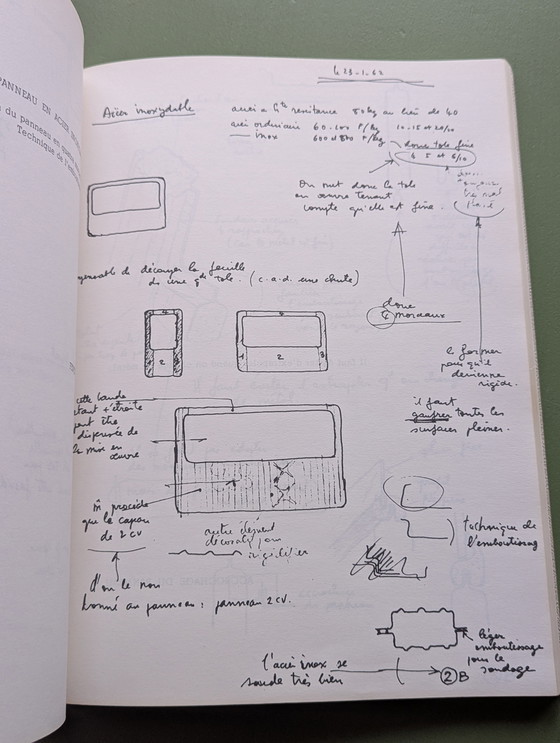 PANNEAU EN ACIER
du panneau en
Technique de l
le 23.1.62
Acier inoxydable
aussi a résistance 80 kg au lieu de 40
acier ordinaire 60.100 F/kg 10-15 et 20/10
inox 600 et 800 F/kg donc tole fine
4 5 et 6/10
On met donc la tole
en œuvre tenant
compte qu'elle est fine.
de découper la feuille
de une gde tole. (c.a.d. une chute)
donc
4 morceaux
le former
pour qu'il
devienne
rigide.
1 2 3
4
1 2 3
cette bande
étant + étroite
peut être
dispensée de
la mise en
œuvre
il faut
gaufrer toutes les
surfaces pleines.
m̂ procédé
que le capou
de 2 CV
autre élément
décoratif pour
rigidifier
technique de
l'emboutissage
d'où le nom
donné au panneau : panneau 2 CV.
léger
emboutissage
pour le
soudage
l'acier inox se
soude très bien
2 B